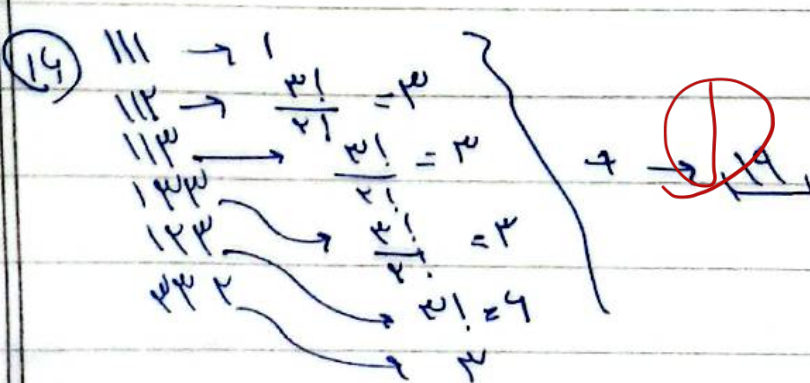 ۱۶ ۱۱۱ → ۱
۱۱۲ → ۳!/۲! = ۳
۱۱۳ → ۳!/۲! = ۳ + → ۱۹
۱۳۳ → ۳!/۲! = ۳
۱۲۳ → ۳! = ۶
۳۳۲ → ۳